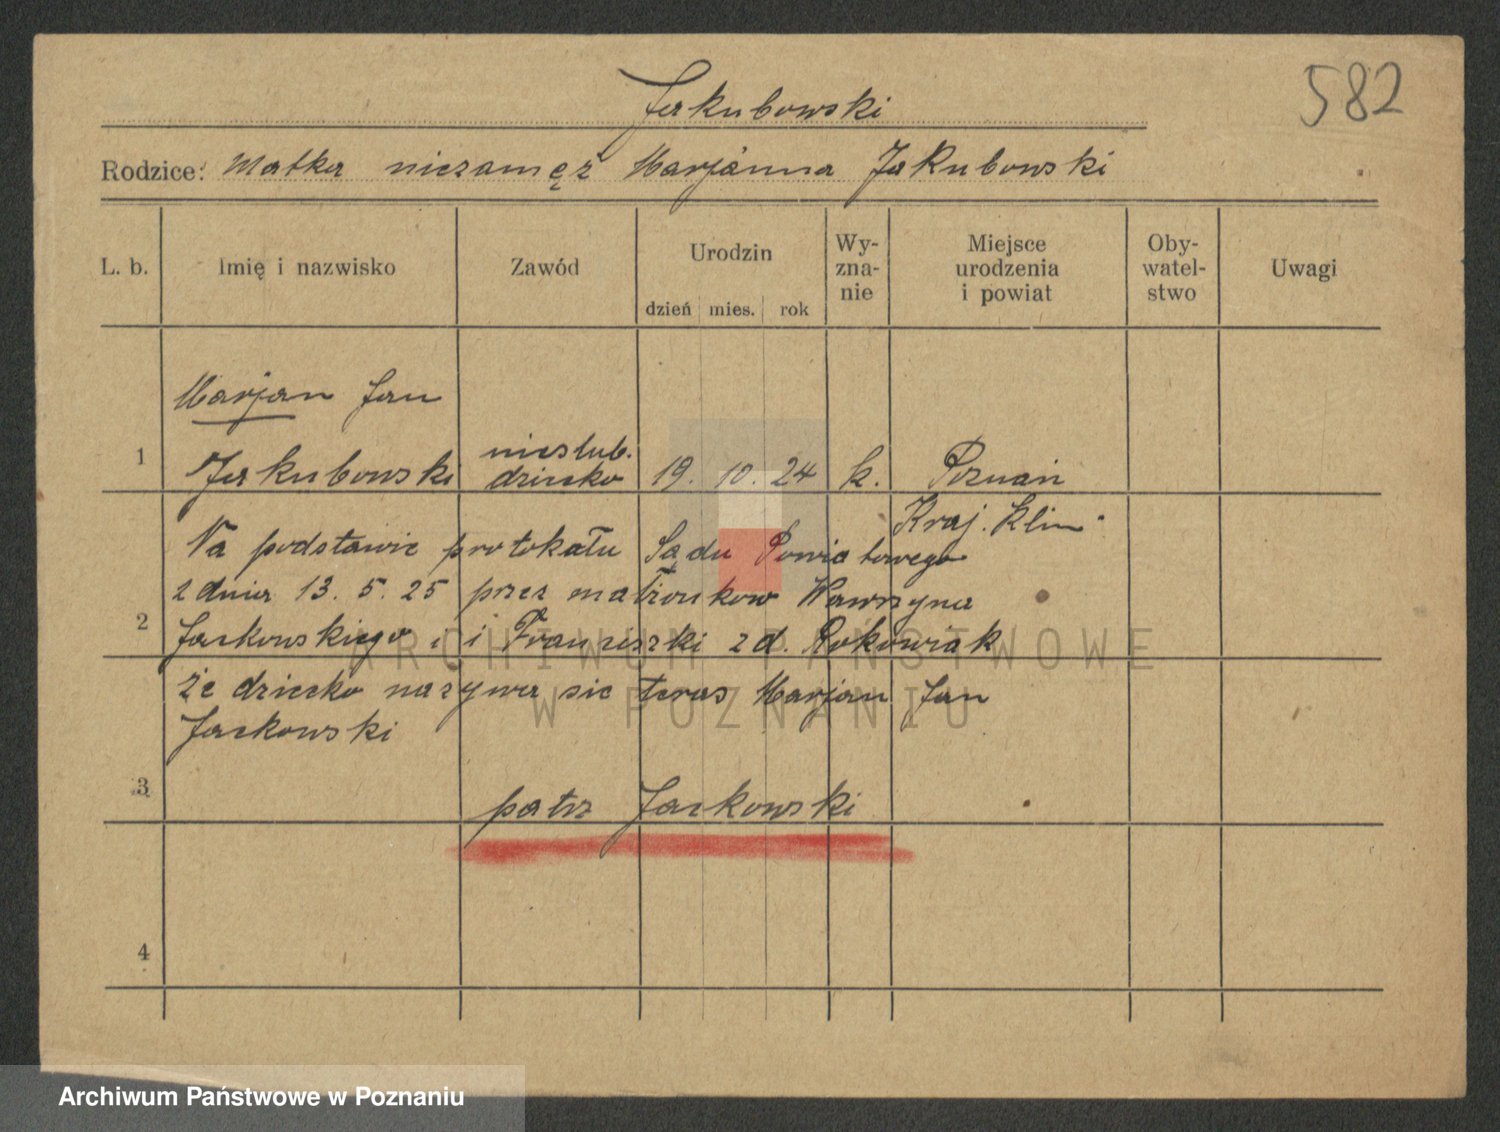 582
Jakubowski
Rodzice: Matka niezamęż Marjanna Jakubowski
L. b.
Imię i nazwisko
Zawód
Urodzin
dzień mies. rok
Wy-
zna-
nie
Miejsce
urodzenia
i powiat
Oby-
watel-
stwo
Uwagi
Marjan Jan
1 Jakubowski
nieslub.
dziecko
19. 10. 24
k.
Poznań
Kraj. Klin.
Na podstawie protokału Sądu Powiatowego
z dnia 13. 5. 25 przez małżonkow Wawrzyna
2 Jackowskiego i Franciszki z d. Rokowiak
że dziecko nazywa sie teras Marjan Jan
Jackowski
3 patrz Jackowski
4
ARCHIWUM PAŃSTWOWE
W POZNANIU
Archiwum Państwowe w Poznaniu